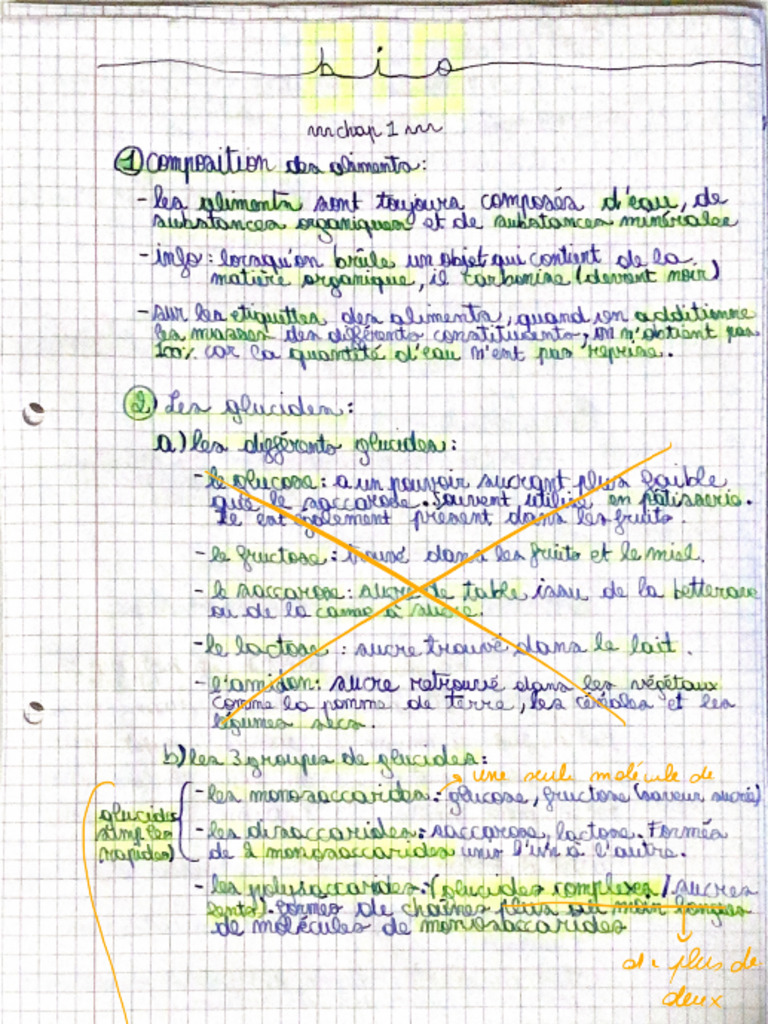 bio
chap 1
1) composition des aliments:
- les aliments sont toujours composés d'eau, de
substances organiques et de substances minérales
- info: lorsqu'on brûle un objet qui contient de la
matière organique, il carbonise (devient noir)
- sur les etiquettes des aliments, quand on additionne
les masses des différents constituants, on n'obtient pas
100% car la quantité d'eau n'est pas reprise.
2) Les glucides:
a) les différents glucides:
- le glucose: a un pouvoir sucrant plus faible
que le saccarose. Souvent utilisé en pâtisserie.
Il est également présent dans les fruits.
- le fructose: trouvé dans les fruits et le miel.
- le saccarose: sucre de table issu de la betterave
ou de la canne à sucre.
- le lactose: sucre trouvé dans le lait.
- l'amidon: sucre retrouvé dans les végétaux
comme la pomme de terre, les céréales et les
légumes secs.
b) les 3 groupes de glucides:
→ une seule molécule de
- les monosaccarides: glucose, fructose (saveur sucré)
glucides
simples
rapides)
- les disaccarides: saccarose, lactose. Formés
de 2 monosaccarides unis l'un à l'autre.
- les polysaccarides: (glucides complexes / sucres
lents). formés de chaînes plus ou moin longues
de molécules de monosaccarides
plus de
deux